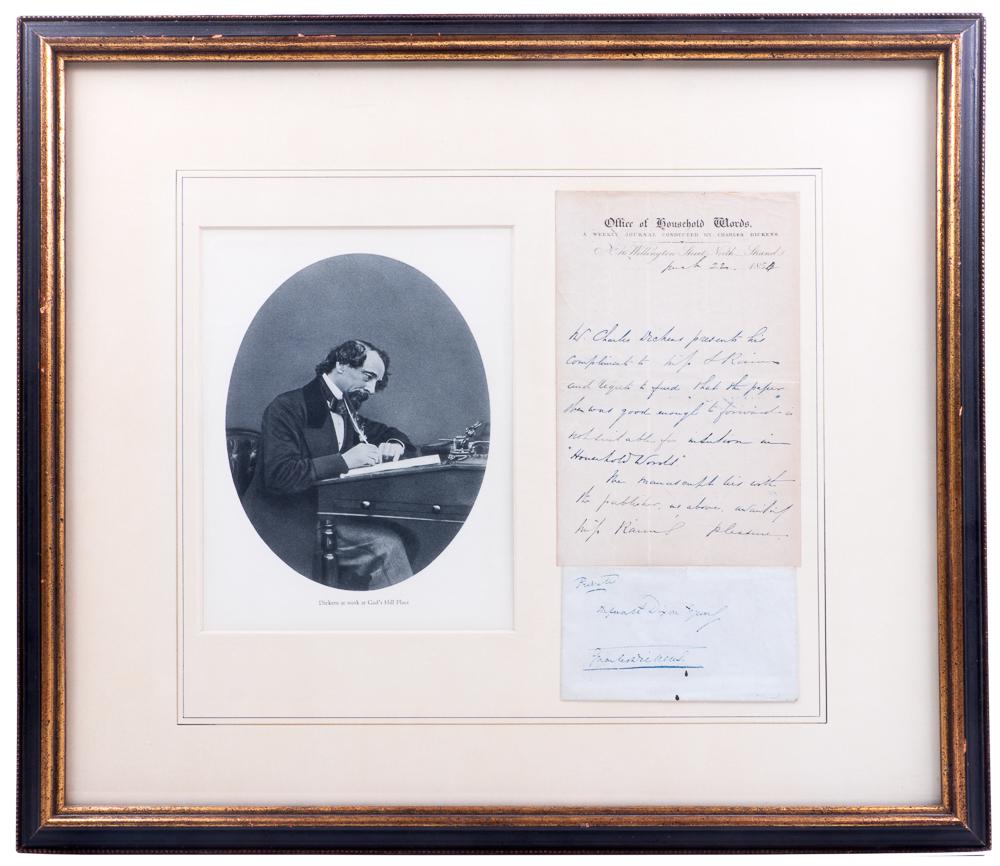 Dickens at work at Gad's Hill Place
Office of Household Words,
A WEEKLY JOURNAL CONDUCTED BY CHARLES DICKENS.
No. 16 Wellington Street North, Strand,
22. 1854
Mr. Charles Dickens presents his
compliments to Miss
and begs to find that the paper
she was good enough to forward is
not suitable for insertion in
"Household Words"
The manuscript lies with
the publisher, as above, awaiting
Miss pleasure.
Private
Dixon Esqre
Charles Dickens